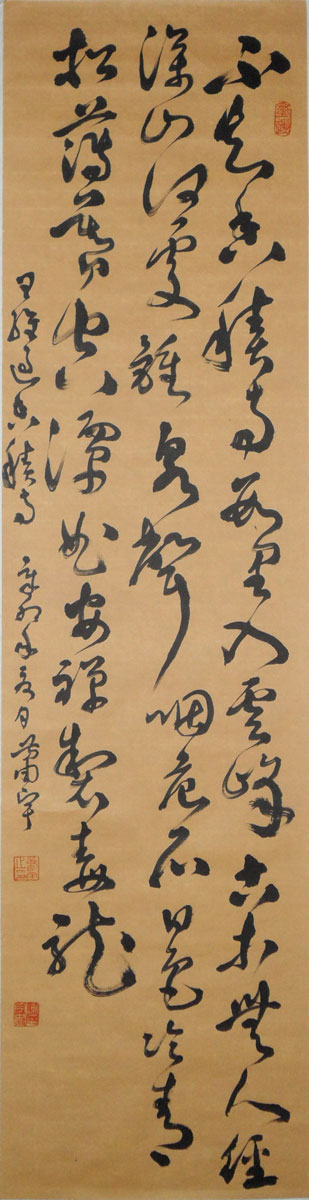 不知香積寺數里入雲峰古木無人徑
深山何處鐘泉聲咽危石日色冷青
松薄暮空潭曲安禪製毒龍
王維過香積寺 辛卯年月蕭宇